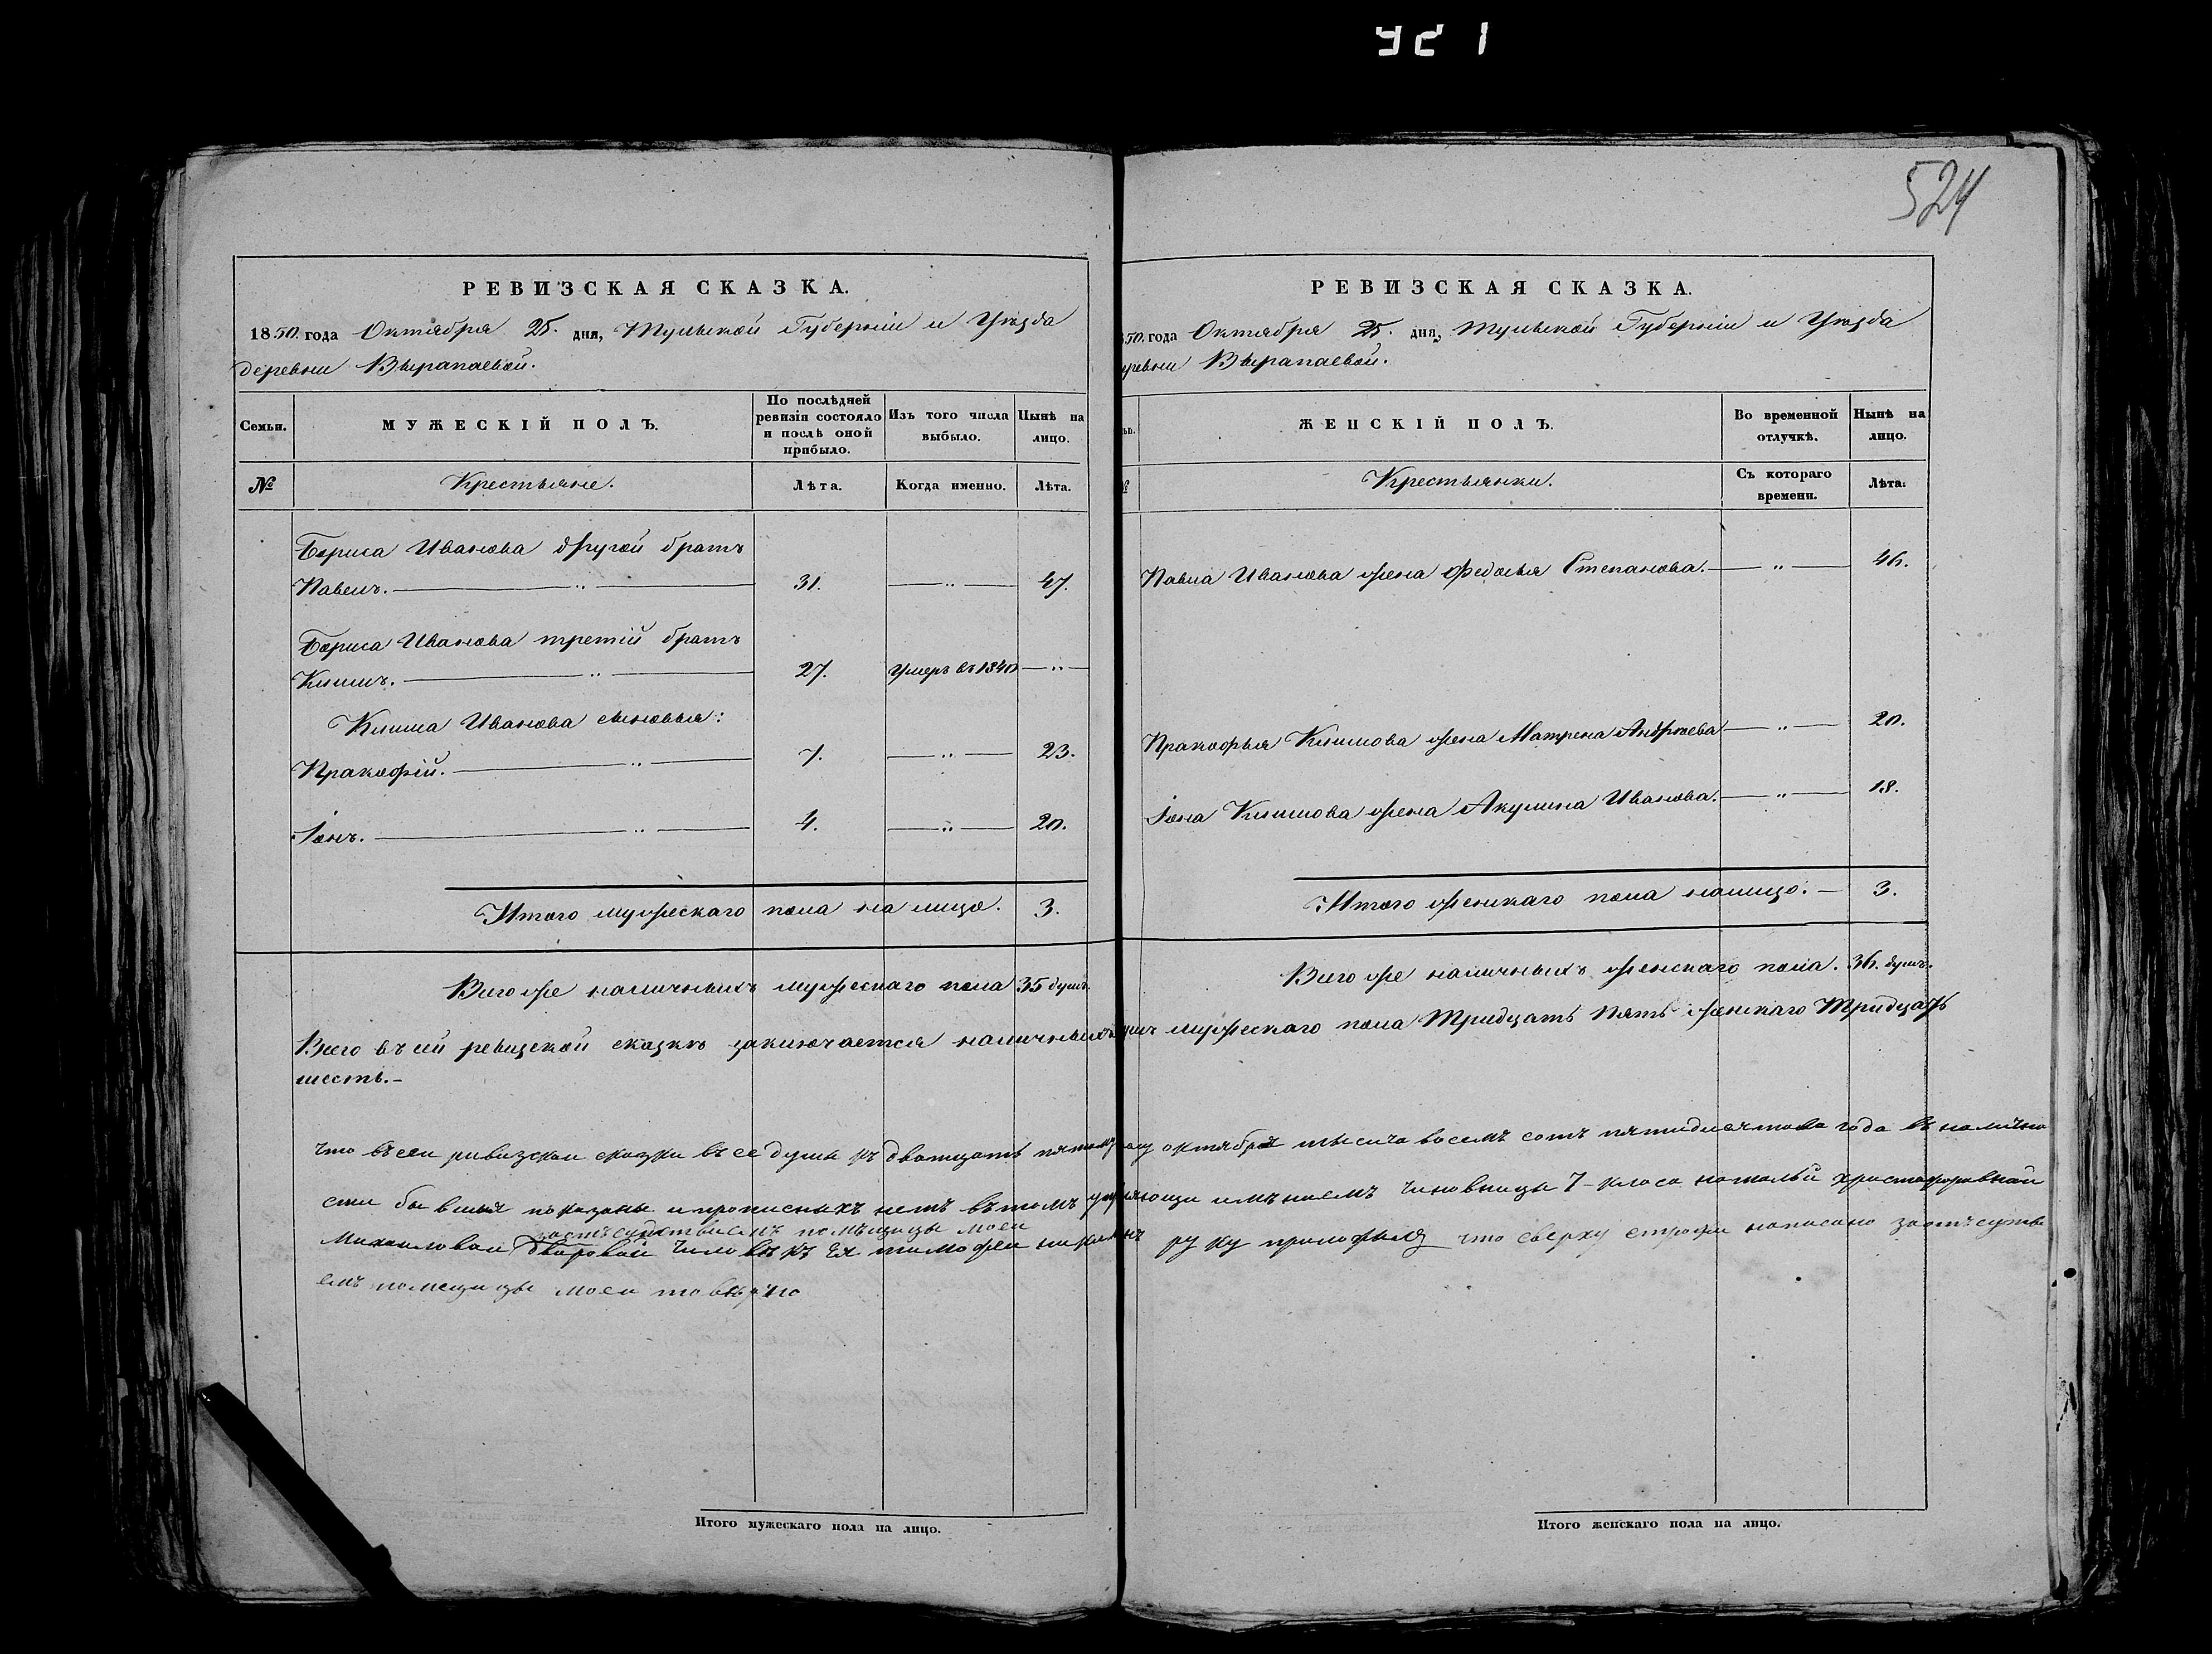 524
РЕВИЗСКАЯ СКАЗКА.
1850. года Октября 25. дня, Тульской Губерніи и Уѣзда
деревни Вырапаевой.
Семьи.
МУЖЕСКІЙ ПОЛЪ.
По послѣдней
ревизіи состояло
и послѣ оной
прибыло.
Изъ того числа
выбыло.
Нынѣ на
лицо.
№
Крестьяне.
Лѣта.
Когда именно.
Лѣта.
Бориса Иванова другой братъ
Павелъ. 31. 47.
Бориса Иванова третій братъ
Климъ. 27. Умеръ въ 1840
Клима Иванова сыновья:
Пракофій. 7. 23.
Іонъ. 4. 20.
Итого мужескаго пола на лицо. 3.
Всего же наличныхъ мужескаго пола 35 душъ.
РЕВИЗСКАЯ СКАЗКА.
50. года Октября 25. дня, Тульской Губерніи и Уѣзда
ревни Вырапаевой.
ьи.
ЖЕНСКІЙ ПОЛЪ.
Во временной
отлучкѣ.
Нынѣ на
лицо.
№
Крестьянки.
Съ котораго
времени.
Лѣта.
Павла Иванова жена Федосья Степанова. 46.
Пракофья Климова жена Матрена Андрѣева 20.
Іона Климова жена Акулина Иванова. 18.
Итого женскаго пола налицо. 3.
Всего же наличныхъ женскаго пола. 36. душъ.
Всего въ сей ревизской сказкѣ заключается наличныхъ душъ мужескаго пола Тридцать пять женскаго Тридцать
шесть.
что въсеи ривизскаи сказки въсе душы къ двотцать пятому октября тысяча восемъ сотъ пятидисятова года въ налично
сти бывшыя показаны и прописныхъ нетъ вътомъ имѣниемъ чиновницы 7 класа натальи христофоровнаи
заотъсудствиемъ помѣщицы моеи
Михаиловаи дворовай человѣкъ Ея тимофеи руку приложилъ что сверху строки написано заотъсутви
емъ помещицы моеи то вѣрно
Итого мужескаго пола на лицо.
Итого женскаго пола на лицо.